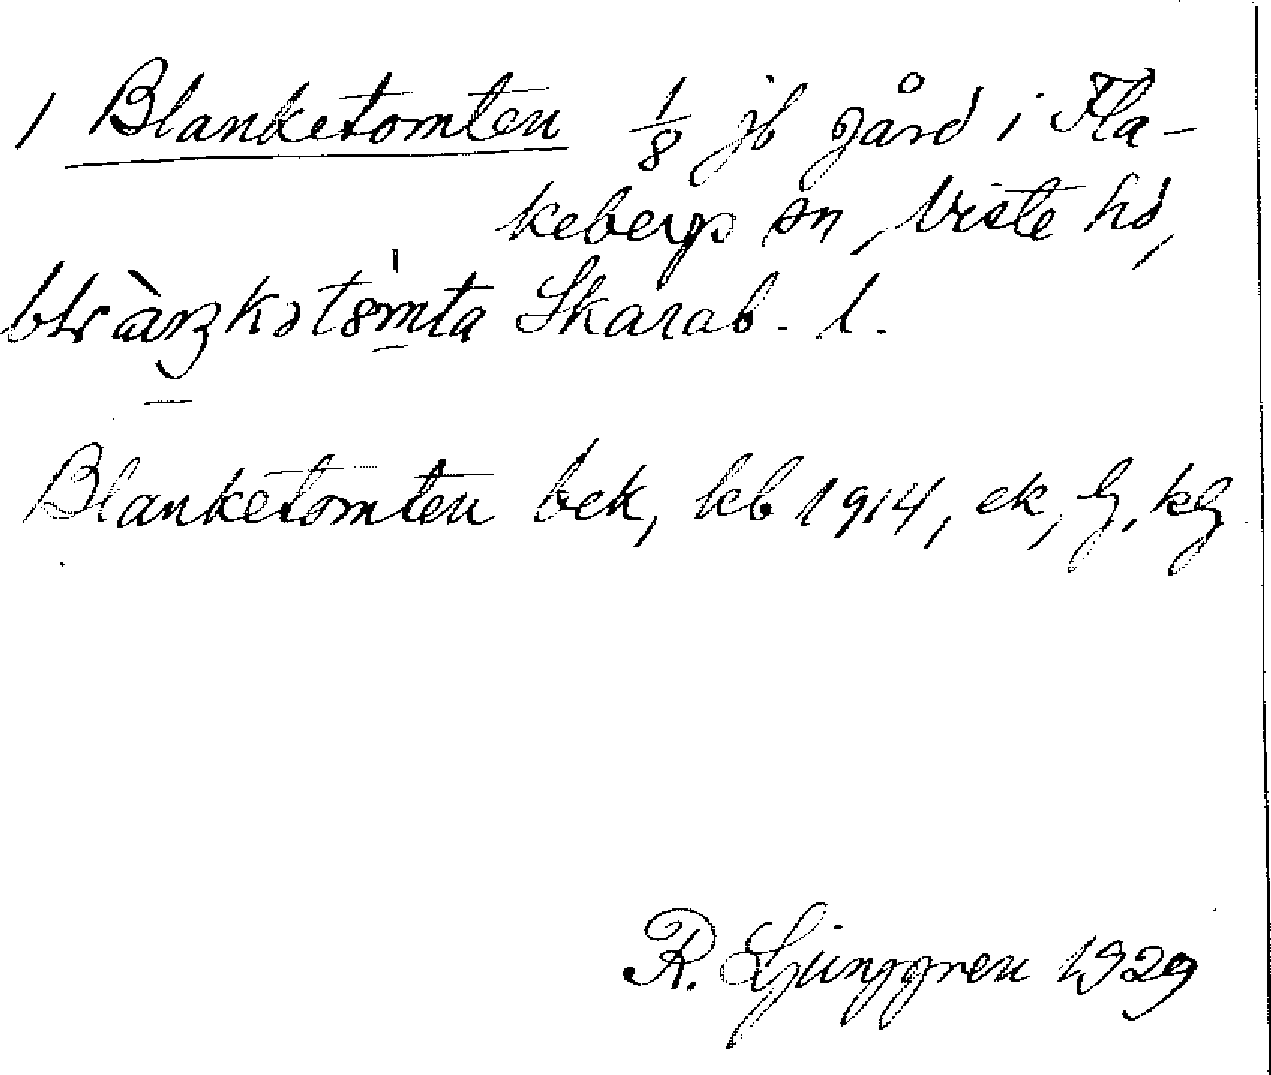 1 Blanketomten 1/8 jb gård i Fla-
kebergs sn, Viste hd,
Skarab. l.
Blanketomten bek, kb 1914, ek, lj, klj
R. Ljunggren 1929